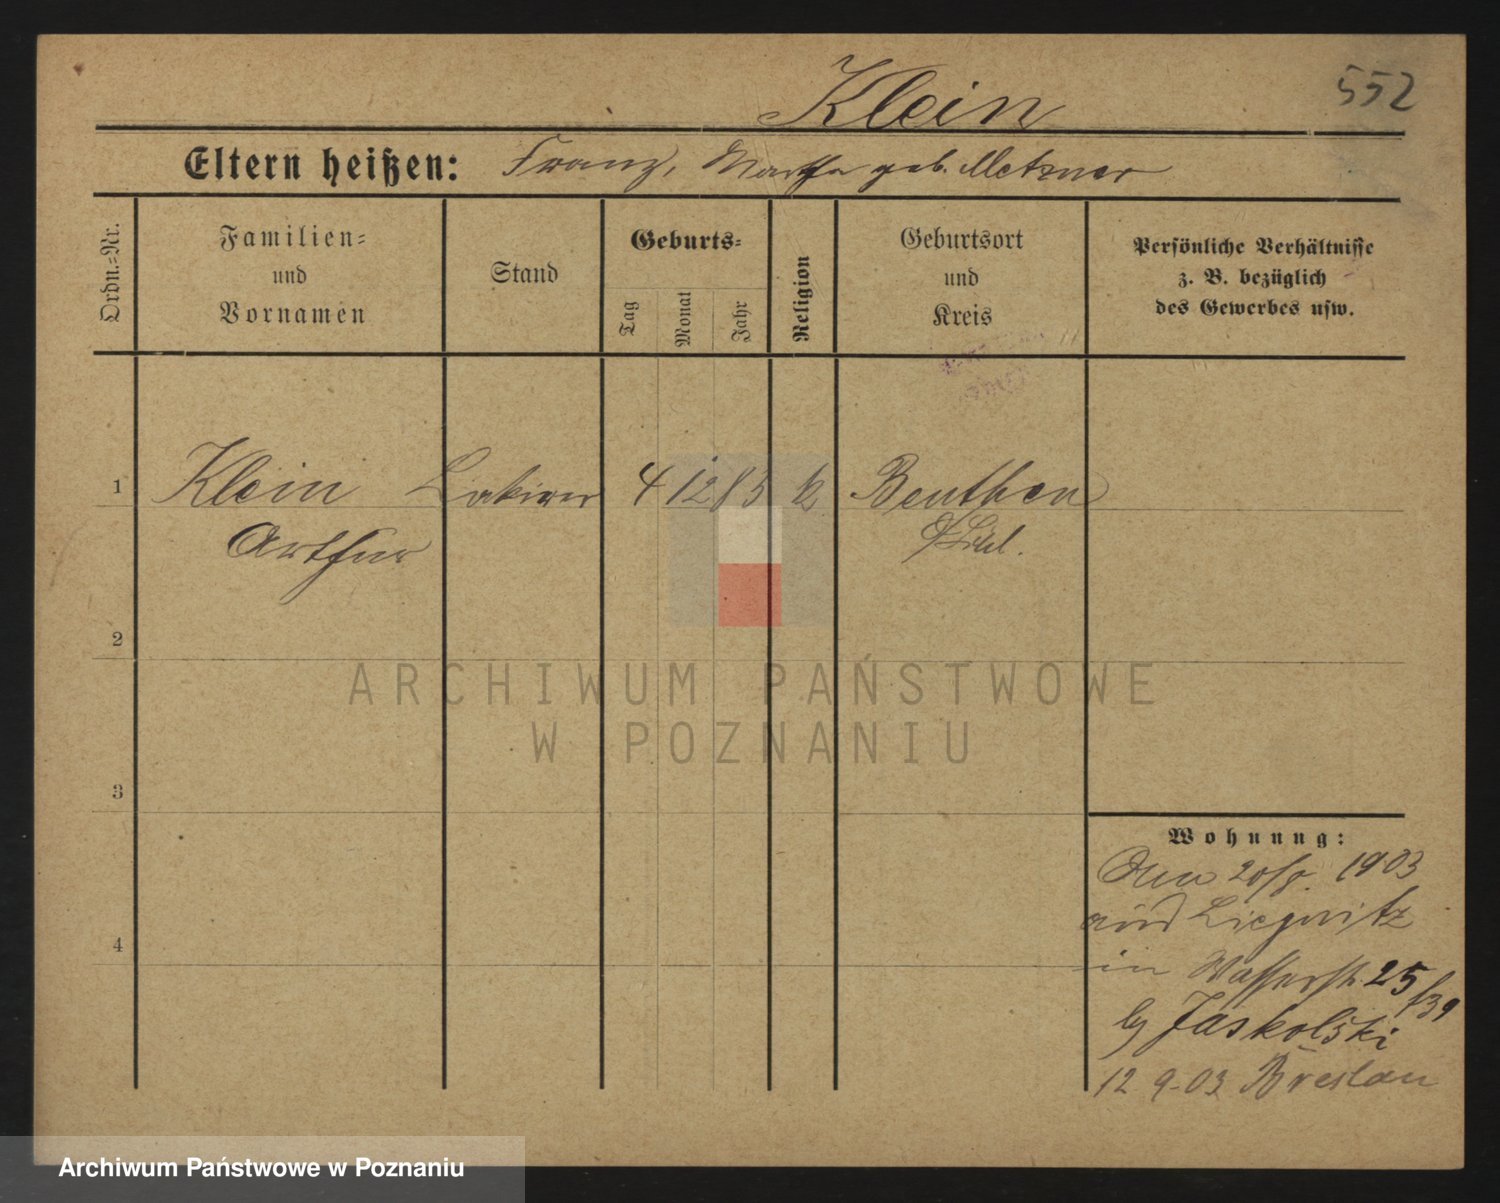 552
Klein
Eltern heißen: Franz, Martha geb. Metzner
Ordn.-Nr.
Familien- und Vornamen
Stand
Geburts-
Tag
Monat
Jahr
Religion
Geburtsort und Kreis
Persönliche Verhältnisse
z. B. bezüglich
des Gewerbes usw.
1 Klein Lakirer 4 12 85 k Beuthen
Arthur
2
3
4
Wohnung:
1903
Liegnitz
in Wasserstr. 25
Jaskolski
12 9-03 Breslau
ARCHIWUM PAŃSTWOWE
W POZNANIU
Archiwum Państwowe w Poznaniu